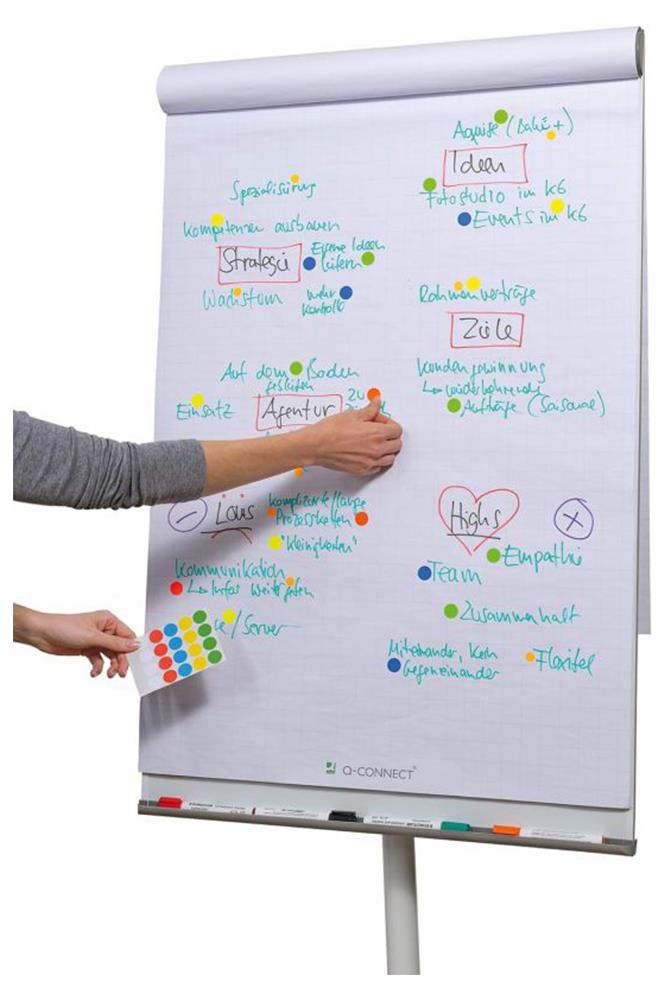 Aquise (Bahn +)
Ideen
Fotostudio im K6
Events im K6
Spezialisirung
Kompetenzen ausbauen
Strategie
Eigene Ideen
liefern
Wachstum
mehr
Kontrolle
Rahmenverträge
Ziele
Kundengewinnung
Aufträge (Saisonal)
Auf dem Boden
Einsatz
Agentur
zu
Lows
komplizierte/lange
Prozessketten
"Kleinigkeiten"
Kommunikation
↳ Infos
/Server
Highs
Empathie
Team
Zusammenhalt
Miteinander, kein
Gegeneinander
Flexibel
Q-CONNECT